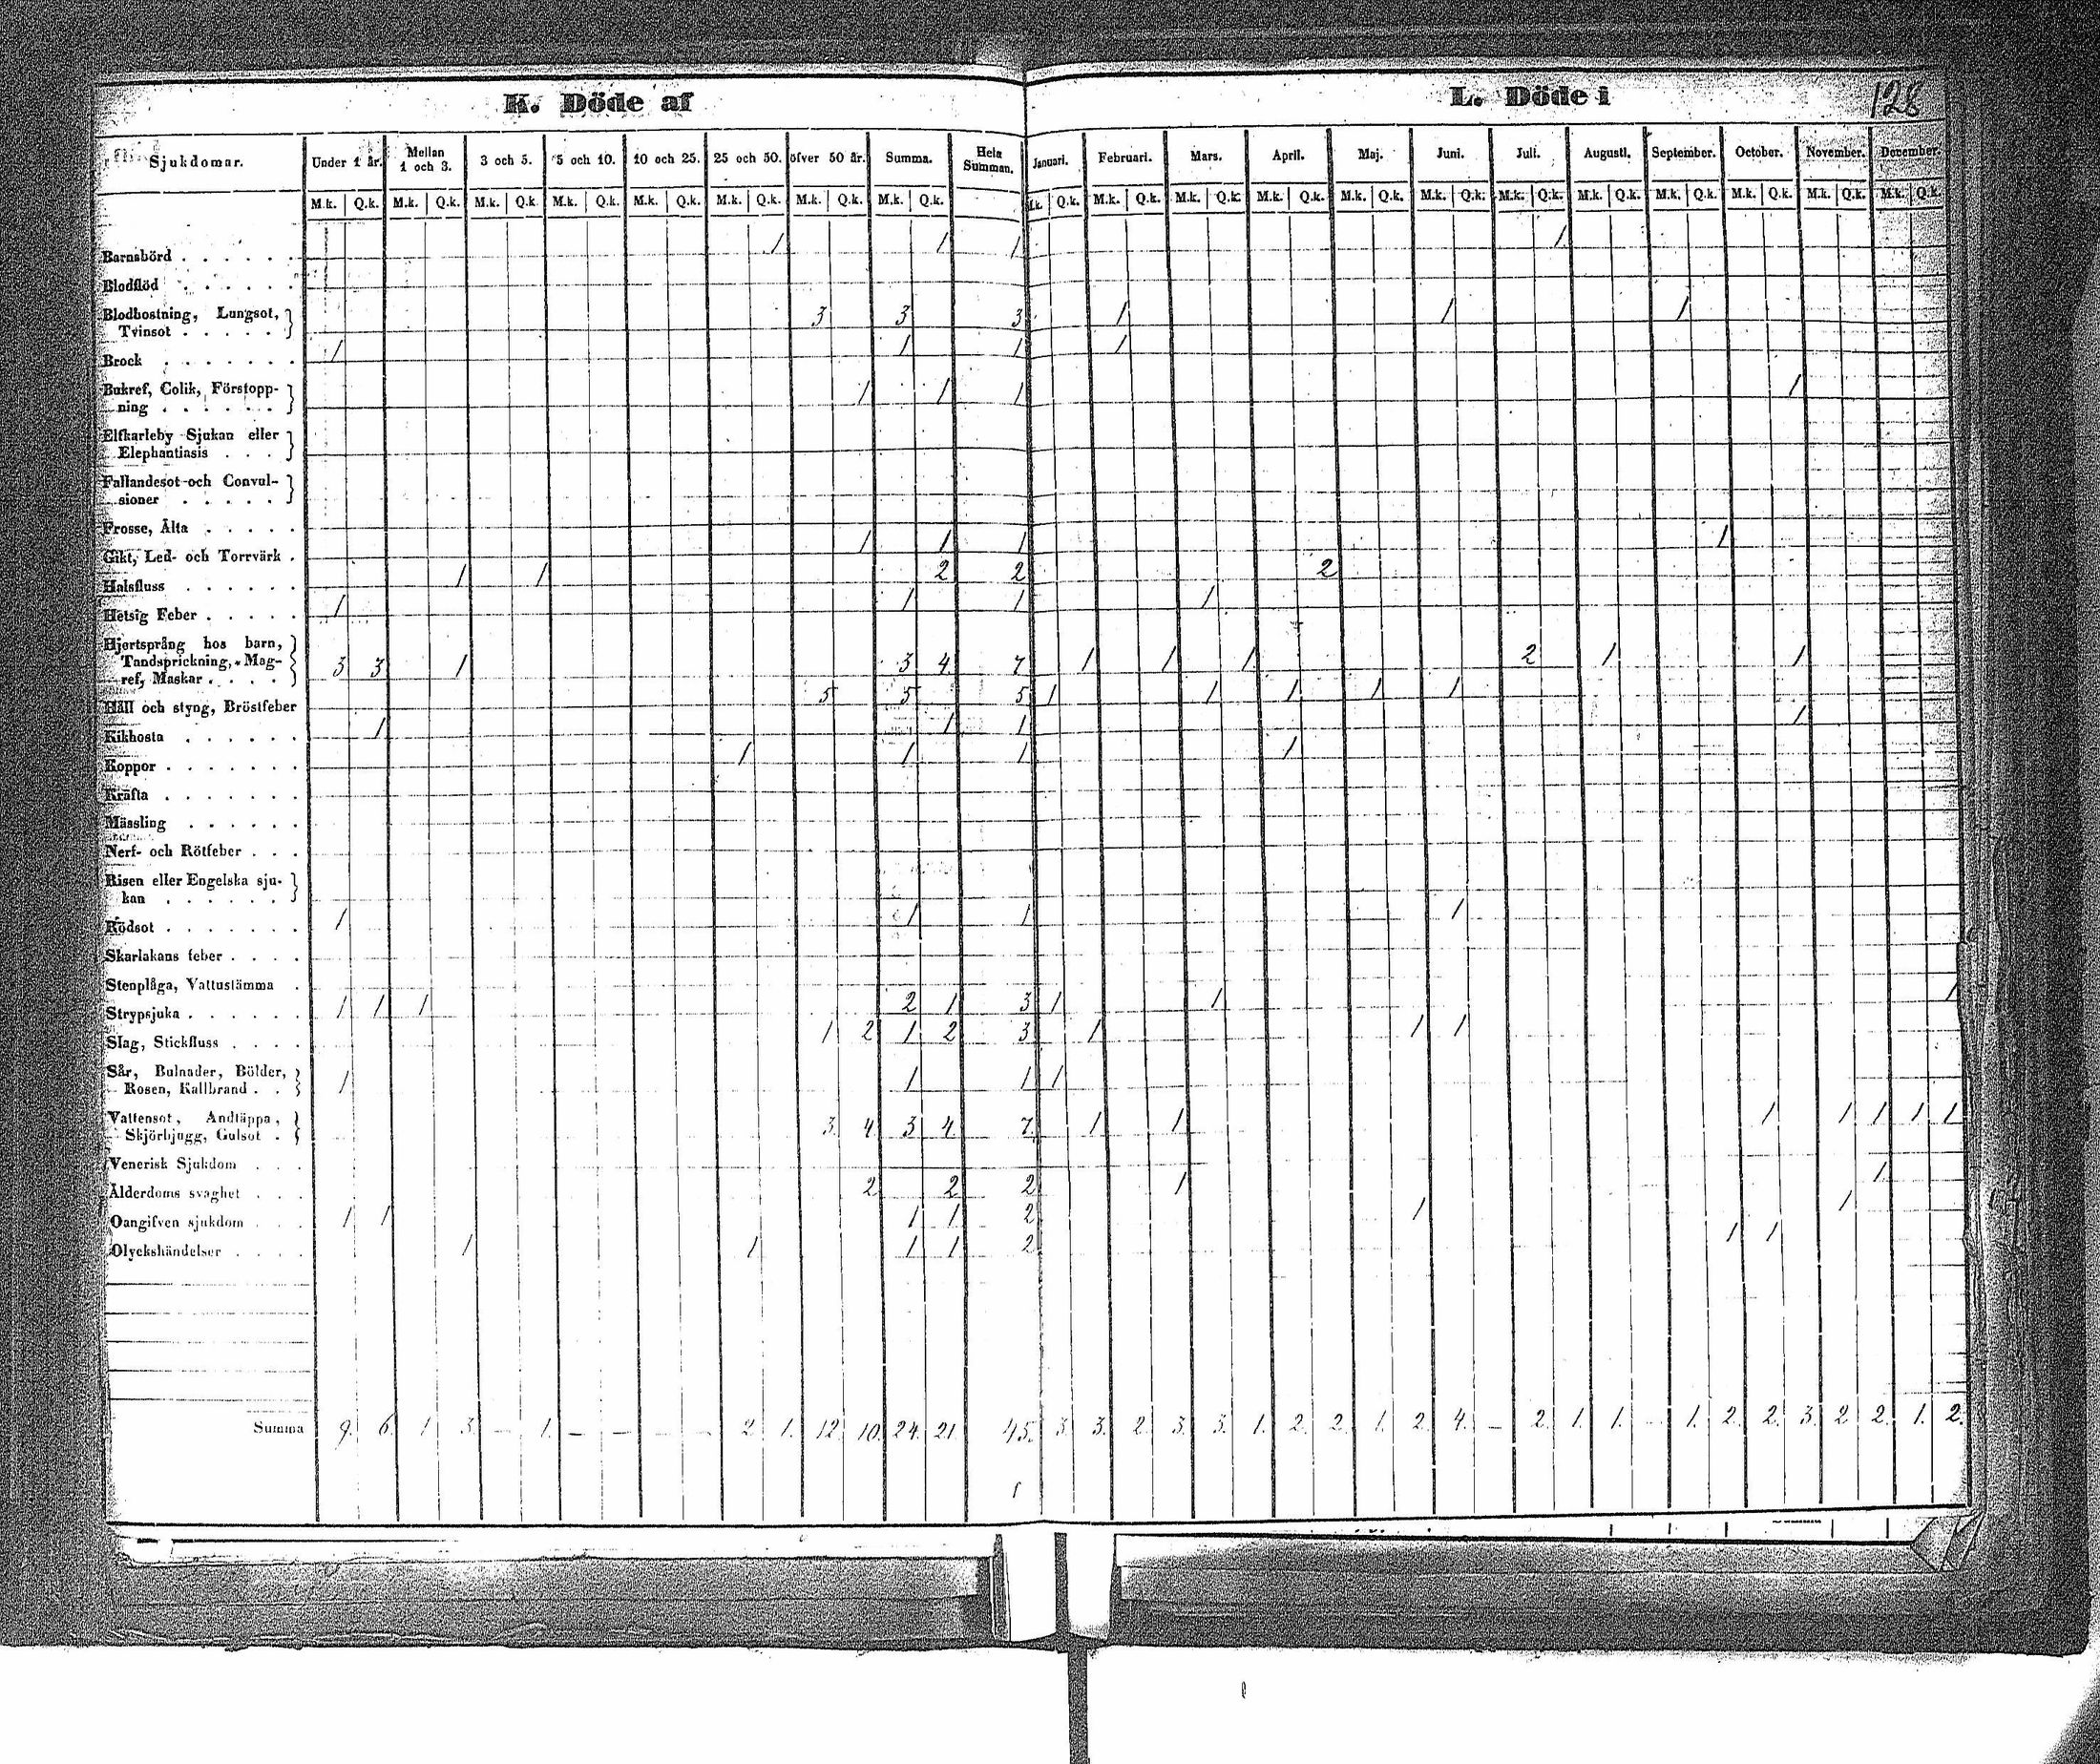 K. Döde af L. Döde i 128
Sjukdomar. Under 1 år. Mellan 1 och 3. 3 och 5. 5 och 10. 10 och 25. 25 och 50. öfver 50 år. Summa. Hela Summan. Januari. Februari. Mars. April. Maj. Juni. Juli. Augusti. September. October. November. December.
M.k. Q.k. M.k. Q.k. M.k. Q.k. M.k. Q.k. M.k. Q.k. M.k. Q.k. M.k. Q.k. M.k. Q.k. M.k. Q.k. M.k. Q.k. M.k. Q.k. M.k. Q.k. M.k. Q.k. M.k. Q.k. M.k. Q.k. M.k. Q.k. M.k. Q.k. M.k. Q.k. M.k. Q.k. M.k. Q.k.
Barnsbörd 1 1 1 1
Blodflöd
Blodhostning, Lungsot,
Tvinsot 3 3 3 1 1 1
Brock 1 1 1 1
Bukref, Colik, Förstopp-
ning 1 1 1 1
Elfkarleby Sjukan eller
Elephantiasis
Fallandesot och Convul-
sioner
Frosse, Älta
Gikt, Led- och Torrvärk 1 1 1 1
Halsfluss 1 1 2 2 2
Hetsig Feber 1 1 1 1
Hjertsprång hos barn,
Tandsprickning, Mag-
ref, Maskar 3 3 1 3 4 7 1 1 1 2 1 1
Håll och styng, Bröstfeber 5 5 5 1 1 1 1 1
Kikhosta 1 1 1 1
Koppor 1 1 1 1
Kräfta
Mässling
Nerf- och Rötfeber
Risen eller Engelska sju-
kan
Rödsot 1 1 1 1
Skarlakans feber
Stenplåga, Vattustämma
Strypsjuka 1 1 1 2 1 3 1 1 1
Slag, Stickfluss 1 2 1 2 3 1 1 1
Sår, Bulnader, Bölder,
Rosen, Kallbrand 1 1 1 1
Vattensot, Andtäppa,
Skjörbjugg, Gulsot 3 4 3 4 7 1 1 1 1 1 1 1
Venerisk Sjukdom
Ålderdoms svaghet 2 2 2 1 1
Oangifven sjukdom 1 1 1 1 2 1 1
Olyckshändelser 1 1 1 1 2 1 1
Summa 9. 6. 1 3. – 1. – – – 2 1. 12 10. 24. 21. 45. 3. 3. 2. 3. 3. 1. 2. 2. 1. 2. 4. – 2. 1. 1. – 1. 2. 2. 3. 2 2. 1. 2.